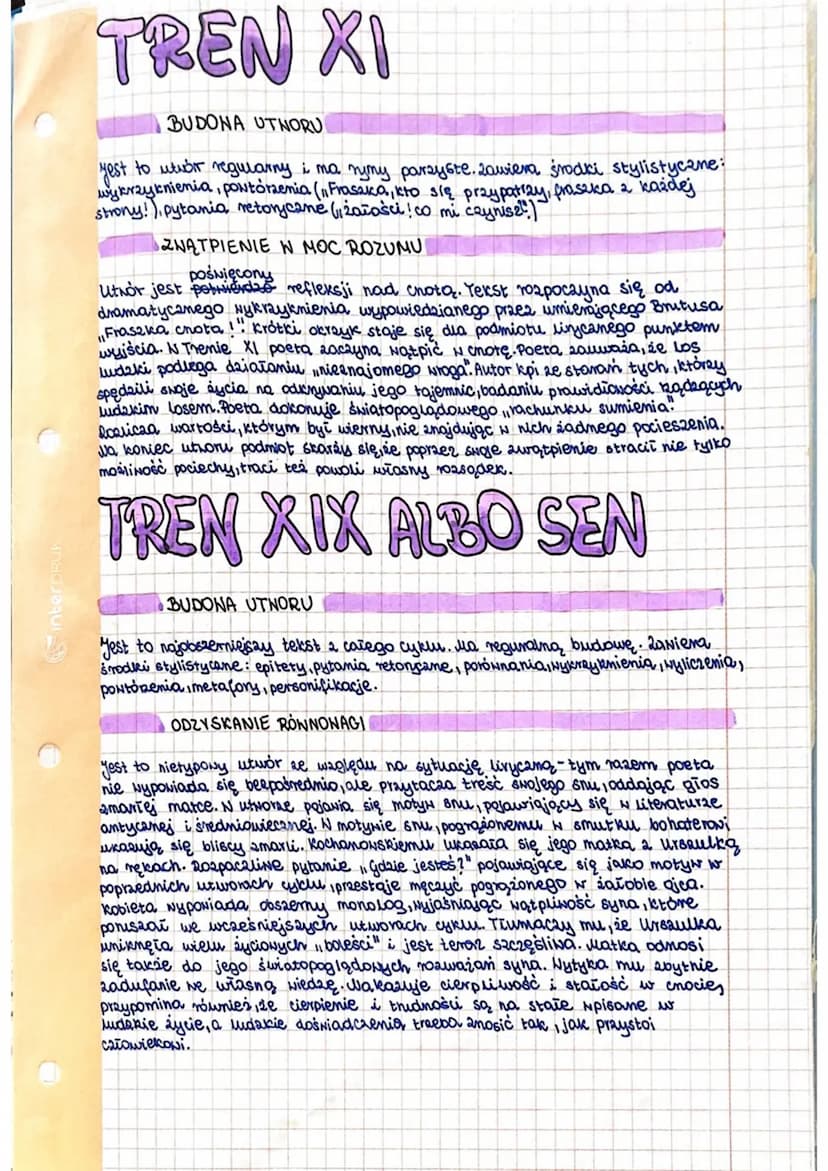 TREN XI
BUDOWA UTWORU
Jest to utwór regularny i ma rymy parzyste. Zawiera środki stylistyczne:
wykrzyknienia, powtórzenia („Fraszka, kto się przypatrzy, fraszka z każdej
strony!), pytania retoryczne („żałości! co mi czynisz?")
ZWĄTPIENIE W MOC ROZUMU
poświęcony
Utwór jest refleksji nad cnotą. Tekst rozpoczyna się od
dramatycznego wykrzyknienia wypowiedzianego przez umierającego Brutusa
„Fraszka cnota!". Krótki okrzyk staje się dla podmiotu lirycznego punktem
wyjścia. W Trenie XI poeta zaczyna wątpić w cnotę. Poeta zauważa, że los
ludzki podlega działaniu „nieznajomego wroga". Autor kpi ze starań tych, którzy
spędzili swoje życia na odkrywaniu jego tajemnic, badaniu prawidłowości rządzących
ludzkim losem. Poeta dokonuje światopoglądowego „rachunku sumienia."
Rozlicza wartości, którym był wierny, nie znajdując w nich żadnego pocieszenia.
Na koniec utworu podmiot skarży się, że poprzez swoje zwątpienie stracił nie tylko
możliwość pociechy, traci też powoli własny rozsądek.
TREN XIX ALBO SEN
interDRUK
BUDOWA UTWORU
Jest to najobszerniejszy tekst z całego cyklu. Ma regularną budowę. Zawiera
środki stylistyczne: epitety, pytania retoryczne, porównania, wykrzyknienia, wyliczenia,
powtórzenia, metafory, personifikacje.
ODZYSKANIE RÓWNOWAGI
Jest to nietypowy utwór ze względu na sytuację liryczną - tym razem poeta
nie wypowiada się bezpośrednio, ale przytacza treść swojego snu, oddając głos
zmarłej matce. W utworze pojawia się motyw snu, pojawiający się w literaturze
antycznej i średniowiecznej. W motywie snu, pogrążonemu w smutku bohaterowi
ukazują się bliscy zmarli. Kochanowskiemu ukazała się jego matka z Urszulką
na rękach. Rozpaczliwe pytanie „Gdzie jesteś?" pojawiające się jako motyw w
poprzednich utworach cyklu, przestaje męczyć pogrążonego w żałobie ojca.
Kobieta wypowiada obszerny monolog, wyjaśniając wątpliwość syna, które
poruszał we wcześniejszych utworach cyklu. Tłumaczy mu, że Urszulka
uniknęła wielu życiowych „boleści" i jest teraz szczęśliwa. Matka odnosi
się także do jego światopoglądowych rozważań syna. Wytyka mu zbytnie
zadufanie we własną wiedzę. Nakazuje cierpliwość i stałość w cnocie,
przypomina również, że cierpienie i trudności są na stałe wpisane w
ludzkie życie, a ludzkie doświadczenia trzeba znosić tak, jak przystoi
człowiekowi.